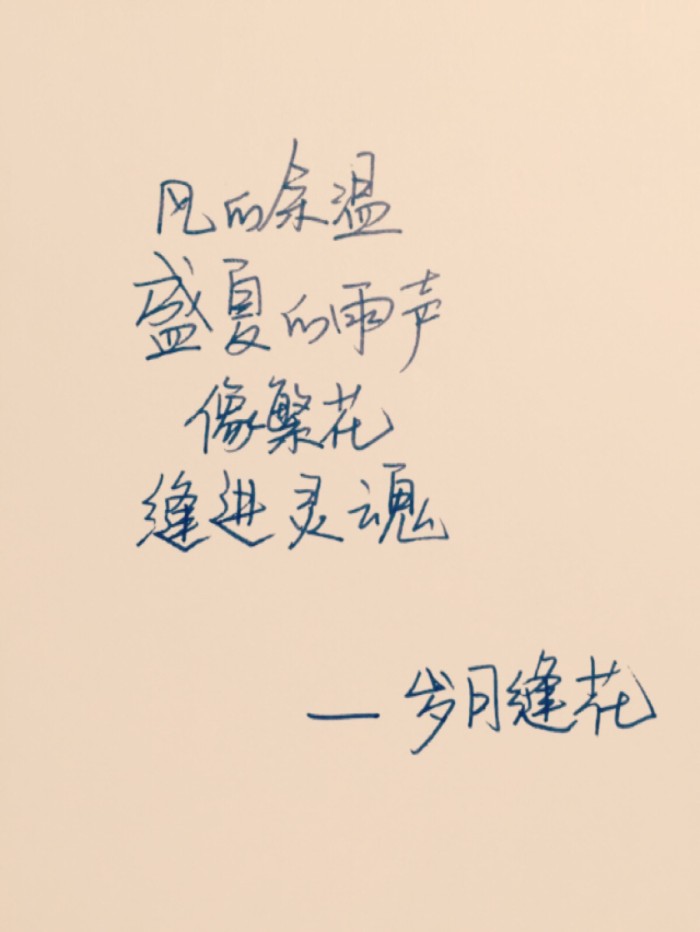 风的余温
盛夏的雨声
像繁花
缝进灵魂
— 岁月缝花